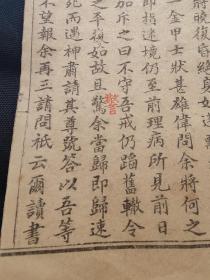 將晚復昏絕身如
一金甲士狀甚雄偉問余將何之
即指迷境仍至前理病所見前日
加斥之曰不守吾戒仍蹈舊轍令
之平復如故且驚余當歸即歸速
死而遇神肅請其尊號答以吾等
不望報余再三請問祇云爾讀書